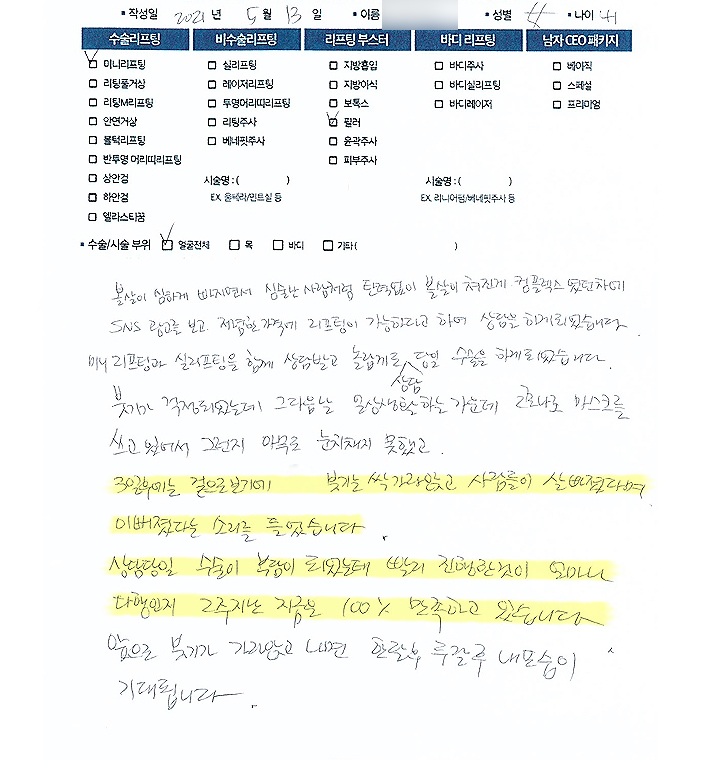 • 작성일 2021 년 5 월 13 일 • 이름 • 성별 • 나이 41
수술리프팅 비수술리프팅 리프팅 부스터 바디 리프팅 남자 CEO 패키지
미니리프팅 실리프팅 지방흡입 바디주사 베이직
리팅풀거상 레이저리프팅 지방이식 바디실리프팅 스페셜
리팅M리프팅 투명머리띠리프팅 보톡스 바디레이저 프리미엄
안면거상 리팅주사 필러
볼턱리프팅 베네핏주사 윤곽주사
반투명 머리띠리프팅 피부주사
상안검 시술명 : ( ) 시술명 : ( )
하안검 EX. 울쎄라/민트실 등 EX. 리니어펌/베네핏주사 등
엘라스티꿈
• 수술/시술 부위 얼굴전체 목 바디 기타 ( )
볼살이 심하게 빠지면서 심술난 사람처럼 탄력없이 볼살이 쳐진게 컴플렉스 였던차에
SNS 광고를 보고 저렴한가격에 리프팅이 가능하다고 하여 상담을 하게되었습니다.
미니 리프팅과 실리프팅을 함께 상담받고 놀랍게도 당일 수술을 하게되었습니다.
상담
붓기가 걱정되었는데 그다음날 일상생활하는 가운데 코로나로 마스크를
쓰고 있어서 그런지 아무도 눈치채지 못했고.
3일후에는 겉으로보기에 붓기는 싹가라앉고 사람들이 살빠졌다며
이뻐졌다는 소리를 들었습니다.
상담당일 수술이 부담이 되었는데 빨리 진행한것이 얼마나
다행인지 2주지난 지금은 100% 만족하고 있습니다
앞으로 붓기가 가라앉고 나면 한달후 두달후 내모습이
기대됩니다.